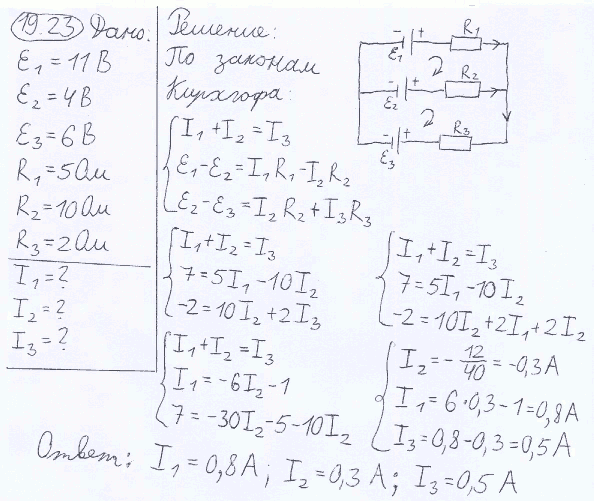 19.23 Дано:
ℰ₁ = 11 В
ℰ₂ = 4 В
ℰ₃ = 6 В
R₁ = 5 Ом
R₂ = 10 Ом
R₃ = 2 Ом
I₁ = ?
I₂ = ?
I₃ = ?
Решение:
По законам
Кирхгофа:
I₁ + I₂ = I₃
ℰ₁ - ℰ₂ = I₁R₁ - I₂R₂
ℰ₂ - ℰ₃ = I₂R₂ + I₃R₃
- + R₁
ℰ₁
- + R₂
ℰ₂
- + R₃
ℰ₃
I₁ + I₂ = I₃
7 = 5I₁ - 10I₂
-2 = 10I₂ + 2I₃
I₁ + I₂ = I₃
7 = 5I₁ - 10I₂
-2 = 10I₂ + 2I₁ + 2I₂
I₁ + I₂ = I₃
I₁ = -6I₂ - 1
7 = -30I₂ - 5 - 10I₂
I₂ = - 12/40 = -0,3 А
I₁ = 6·0,3 - 1 = 0,8 А
I₃ = 0,8 - 0,3 = 0,5 А
Ответ: I₁ = 0,8 А; I₂ = 0,3 А; I₃ = 0,5 А